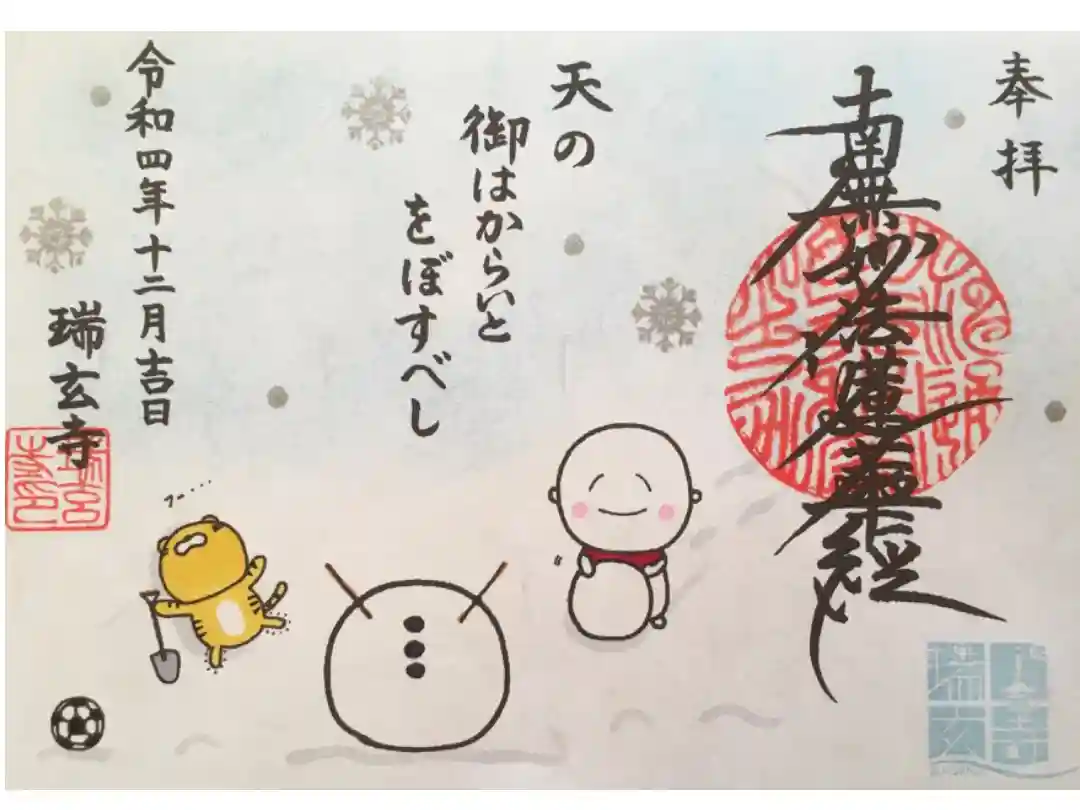 奉拝
南無妙法蓮華経
天の
御はからいと
をぼすべし
令和四年十二月吉日
瑞玄寺
フー……
瑞玄寺